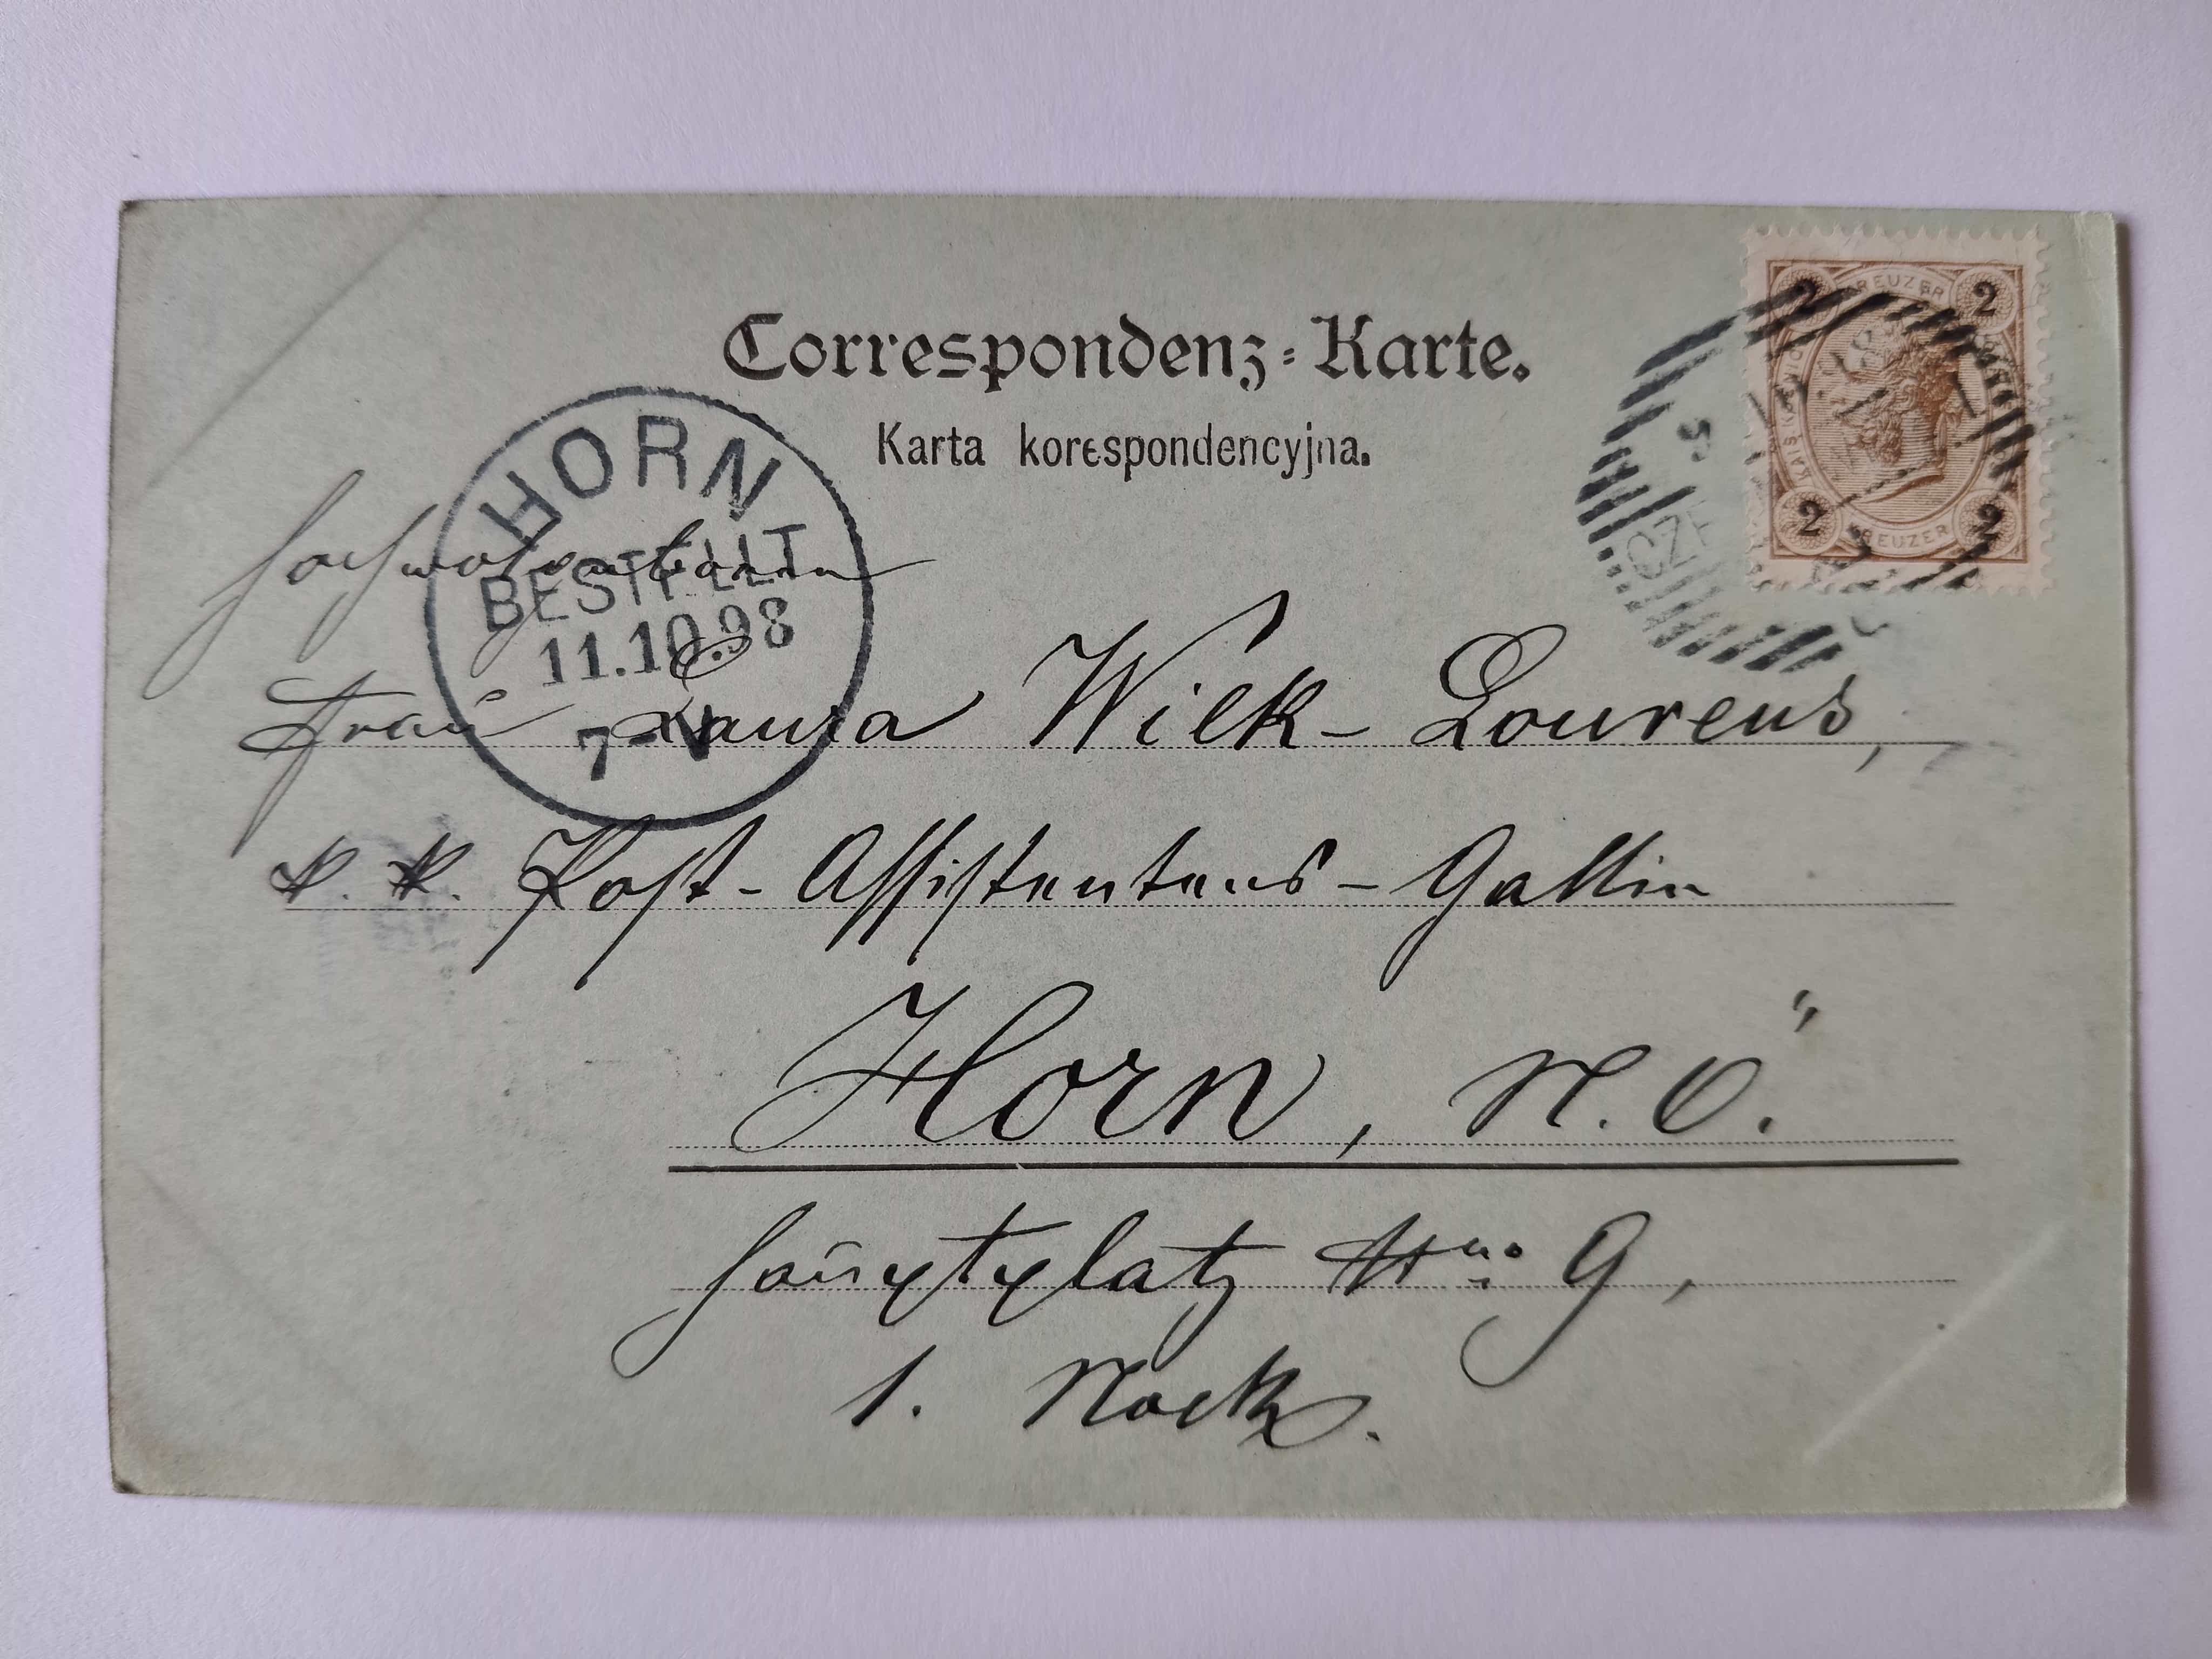 Correspondenz-Karte.
Karta korespondencyjna.
KREUZER
2 2
2 2
KREUZER
CZE
HORN
BESTELLT
11.10.98
7-V
Hochwohlgeboren
Frau Laura Wilk-Lourens,
k. k. Post-Assistentens-Gattin
Horn, N. Ö.
Hauptplatz Nro. 9,
1. Stock.